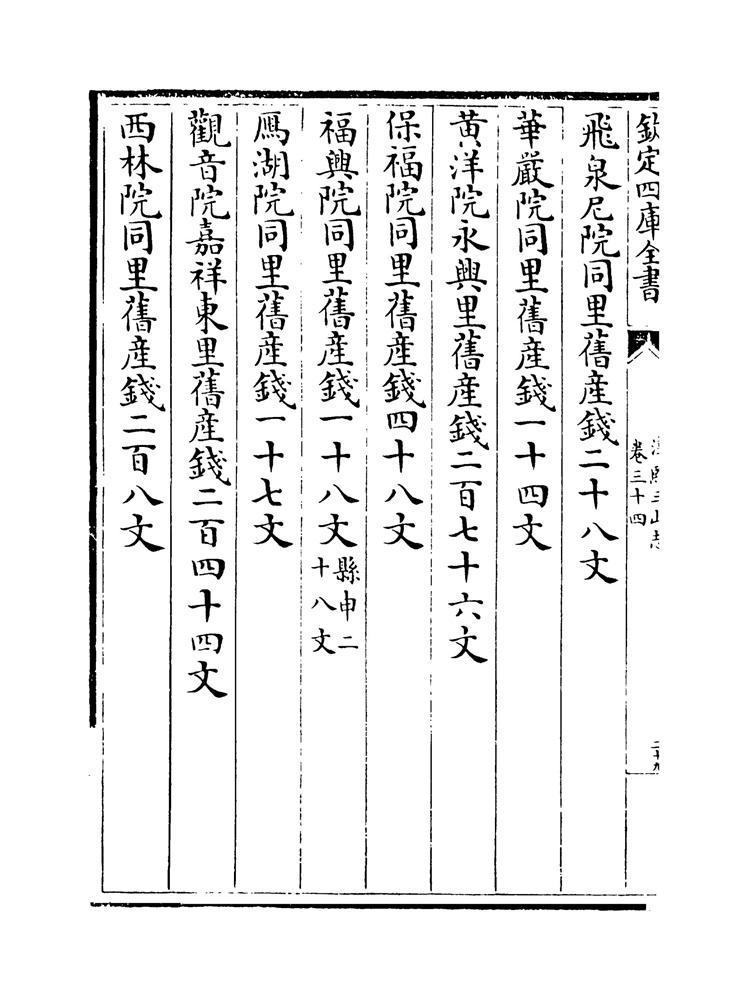 欽定四庫全書
卷三十四
飛泉尼院同里舊産錢二十八文
華嚴院同里舊産錢一十四文
黄洋院永興里舊産錢二百七十六文
保福院同里舊産錢四十八文
福興院同里舊産錢一十八文縣申二
十八文
鴈湖院同里舊産錢一十七文
觀音院嘉祥東里舊産錢二百四十四文
西林院同里舊産錢二百八文